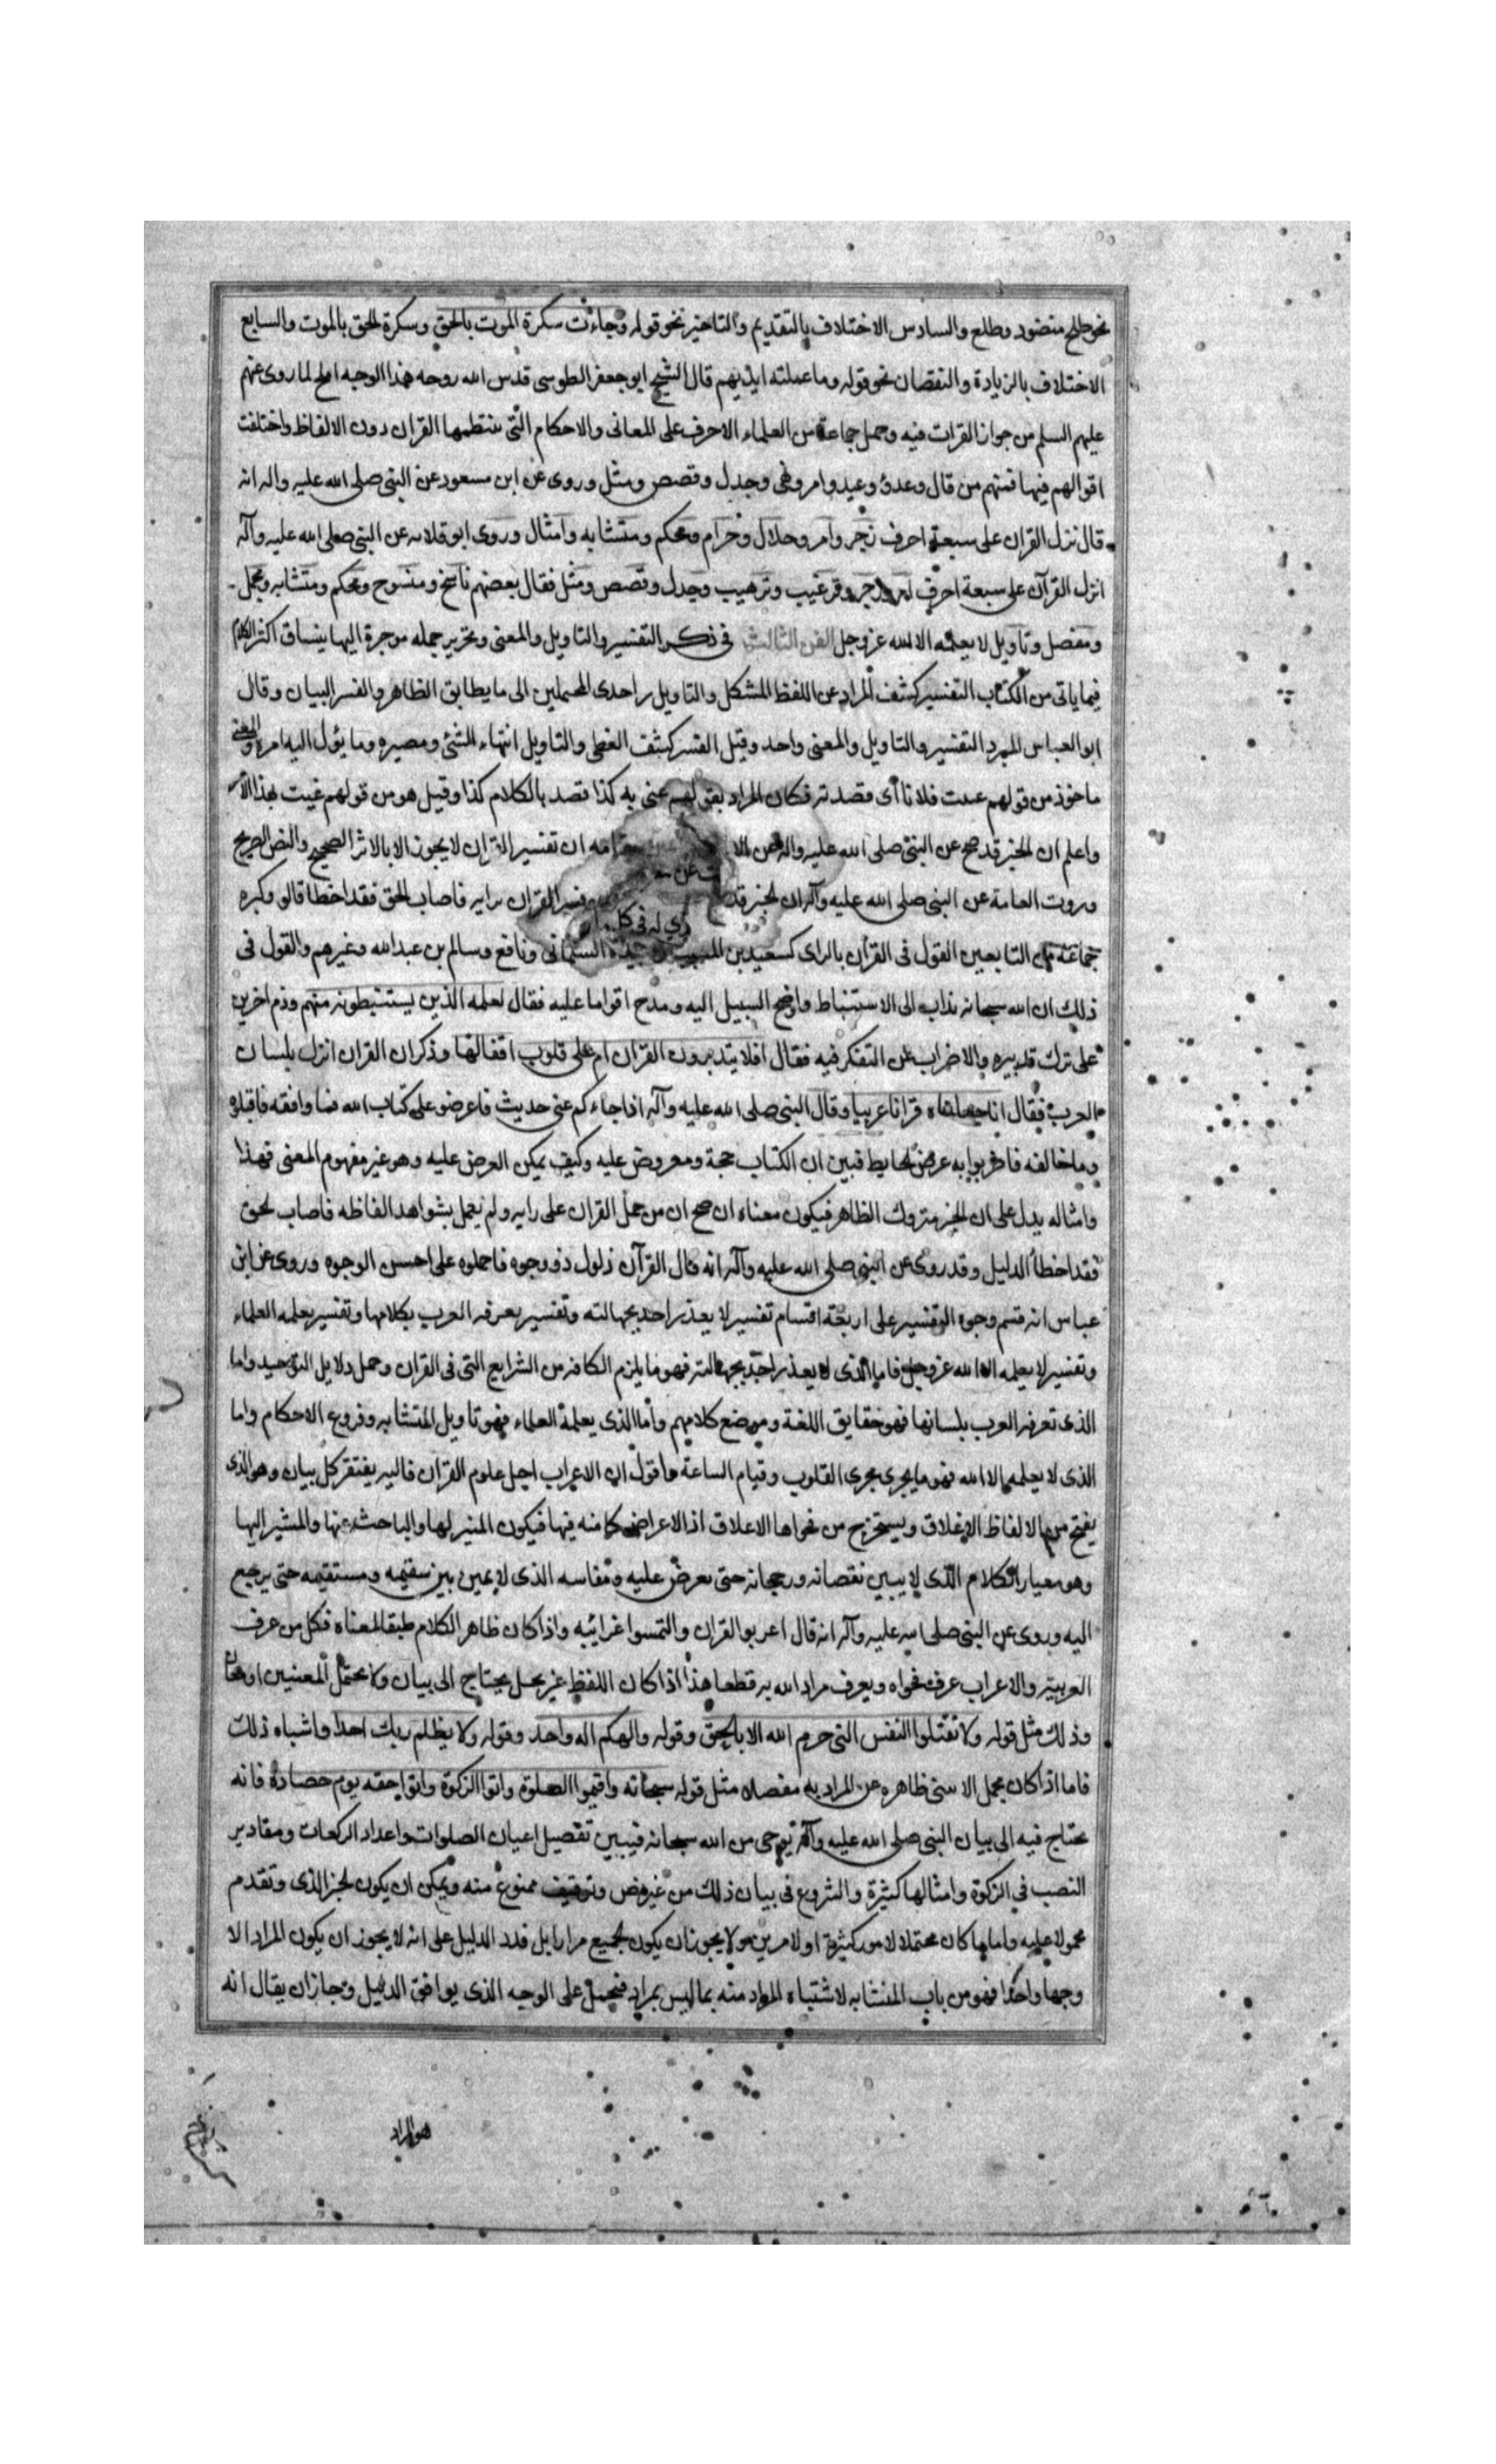 نحو طلح منضود وطلع والسادس الاختلاف بالتقديم والتاخير نحو قوله وجاءت سكرة الموت بالحق وسكرة الحق بالموت والسابع
الاختلاف بالزيادة والنقصان نحو قوله وما عملته ايديهم قال الشيخ ابو جعفر الطوسى قدس الله روحه هذا الوجه املح لما روى عنهم
عليهم السلم من جواز القرات فيه وحمل جماعة من العلماء الاحرف على المعانى والاحكام التى ينتظمها القران دون الالفاظ واختلفت
اقوالهم فيها فمنهم من قال وعد و وعيد وامر ونهى وجدل وقصص ومثل وروى عن ابن مسعود عن النبى صلى الله عليه واله انه
قال نزل القران على سبعة احرف زجر وامر وحلال وحرام ومحكم ومتشابه وامثال وروى ابو قلابه عن النبى صلى الله عليه وآله
انزل القرآن على سبعة احرف امر وزجر وترغيب وترهيب وجدل وقصص ومثل فقال بعضهم ناسخ ومنسوخ ومحكم ومتشابه ومجمل
ومفصل وتاويل لا يعلمه الا الله عزوجل الفن الثالث فى ذكر التفسير والتاويل والمعنى وتحرير جمله موجزة اليها ينساق اكثر الكلام
فيما ياتى من الكتاب التفسير كشف المراد عن اللفظ المشكل والتاويل رد احدى المحتملين الى ما يطابق الظاهر والفسر البيان وقال
ابو العباس المبرد التفسير والتاويل والمعنى واحد وقيل الفسر كشف المغطى والتاويل انتهاء الشئ ومصيره وما يؤل اليه امره والمعنى
ماخوذ من قولهم عنيت فلانا أى قصدته فكان المراد بقولهم عنى به كذا قصد بالكلام كذا وقيل هو من قولهم عنيت بهذا الامر
واعلم ان الخبر قد صح عن النبى صلى الله عليه واله وعن الا مقامه ان تفسير القران لا يجوز الا بالاثر الصحيح والنص الصريح
وروت العامة عن النبى صلى الله عليه وآله ان فسر القران برايه فاصاب الحق فقد اخطا قالو وكره
جماعة من التابعين القول فى القرآن بالراى كسعيد بن المسيب وعبيدة السلمانى ونافع وسالم بن عبد الله وغيرهم والقول فى
ذلك ان الله سبحانه نداب الى الاستنباط واوضح السبيل اليه ومدح اقواما عليه فقال لعلمه الذين يستنبطونه منهم وذم اخرين
على ترك تدبيره والاضراب عن التفكر فيه فقال افلا يتدبرون القران ام على قلوب اقفالها وذكر ان القران انزل بلسان
العرب فقال انا جعلناه قرانا عربيا وقال النبى صلى الله عليه وآله اذا جاءكم عنى حديث فاعرضوه على كتاب الله فما وافقه فاقبلوه
وما خالفه فاضربوا به عرض الحايط فبين ان الكتاب حجة ومعروض عليه وكيف يمكن العرض عليه وهو غير مفهوم المعنى فهذا
وامثاله يدل على ان الخبر متروك الظاهر فيكون معناه ان صح ان من حمل القران على رايه ولم يعمل بشواهد الفاظه فاصاب الحق
فقد اخطأ الدليل وقد روى عن النبى صلى الله عليه وآله انه قال القرآن ذلول ذو وجوه فاحملوه على احسن الوجوه وروى عن ابن
عباس انه قسم وجوه التفسير على اربعة اقسام تفسير لا يعذر احد بجهالته وتفسير يعرفه العرب بكلامها وتفسير يعلمه العلماء
وتفسير لا يعلمه الا الله عزوجل فاما الذى لا يعذر احد بجهالته فهو ما يلزم الكافه من الشرايع التى فى القران وحمل دلايل التوحيد واما
الذى تعرفه العرب بلسانها فهو حقايق اللغة وموضع كلامهم وأما الذى يعلمه العلماء فهو تاويل المتشابه وفروع الاحكام واما
الذى لا يعلمه الا الله فهو ما يجرى مجرى القلوب وقيام الساعة واقول ان الاعراب اجل علوم القران فاليه يفتقر كل بيان وهو الذى
يفتح من الالفاظ الاغلاق ويستخرج من فحواها الاعلاق اذ الاعراض كامنه فيها فيكون المثير لها والباحث عنها والمشير اليها
وهو معيار الكلام الذى لا يبين نقصانه ورجحانه حتى يعرض عليه ومقاسه الذى لا يميز بين سقيمه ومستقيمه حتى يرجع
اليه وروى عن النبى صلى الله عليه وآله انه قال اعربو القران والتمسوا غرائبه واذا كان ظاهر الكلام طبقا لمعناه فكل من عرف
العربيه والاعراب عرف فحواه ويعرف مراد الله به قطعا هذا اذا كان اللفظ غير مجمل يحتاج الى بيان ولا يحتمل المعنيين او معان
وذلك مثل قوله ولا تقتلوا النفس التى حرم الله الا بالحق وقوله والهكم اله واحد وقوله ولا يظلم ربك احدا واشباه ذلك
فاما اذا كان مجمل لا ينبئ ظاهره عن المراد به مفصلا مثل قوله سبحانه واقيموا الصلوة واتوا الزكوة واتوا حقه يوم حصاده فانه
يحتاج فيه الى بيان النبى صلى الله عليه وآله بوحى من الله سبحانه فيبين تفصيل اعيان الصلوات واعداد الركعات ومقادير
النصب فى الزكوة وامثالها كثيرة والشروع فى بيان ذلك من غير نص وتوقيف ممنوع منه ويمكن ان يكون الخبر الذى وتقدم
محمولا عليه واما ما كان محتملا لامور كثيرة او لامرين ولا يجوز ان يكون الجميع مرادا بل قد دل الدليل على انه لا يجوز ان يكون المراد الا
وجها واحدا فهو من باب المتشابه لاشتباه المراد منه بما ليس بمراد فيحمل على الوجه الذى يوافق الدليل وجاز ان يقال انه
هو المراد